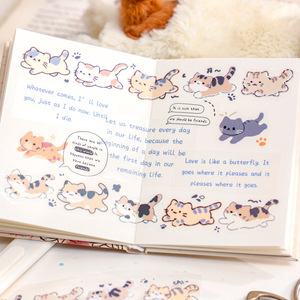 Whatever comes, I' ll love
you, just as I do now. Until
I die.
Let us treasure every day
in our life, because the
beginning of a day will be
the first day in our
remaining life.
It is rule that
we should be friends
There are
friends
Love is like a butterfly. It
goes where it pleases and it
pleases where it goes.